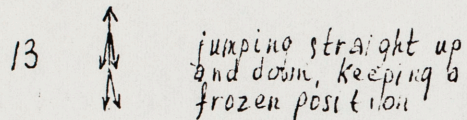 13 jumping straight up
and down, keeping a
frozen position